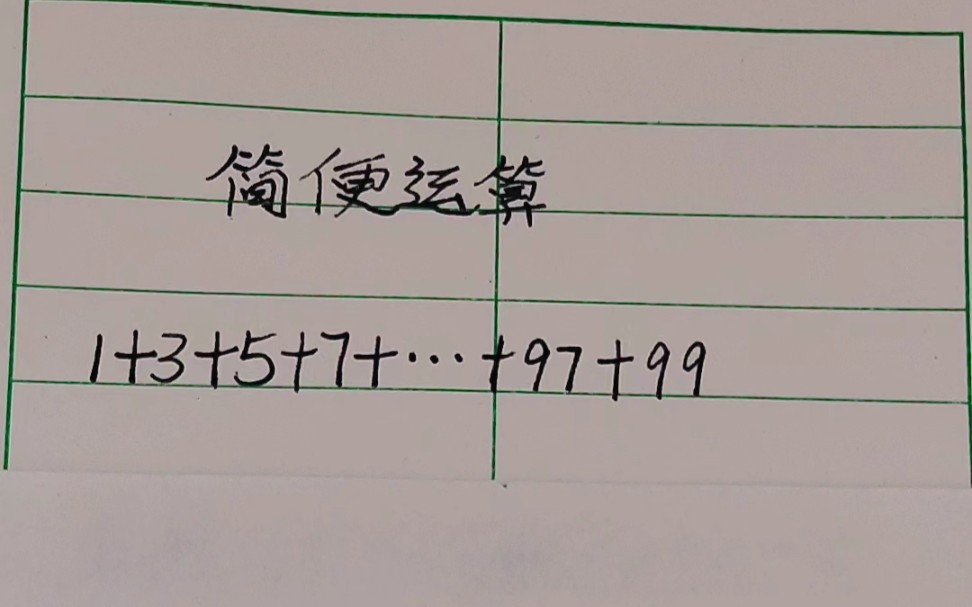 简便运算
1+3+5+7+…+97+99